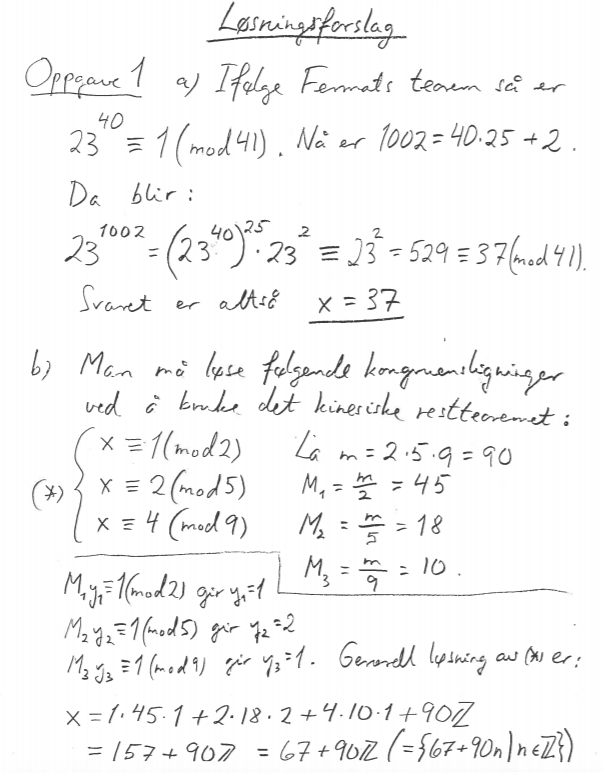 Løsningsforslag
Oppgave 1 a) Ifølge Fermats teorem så er
23^40 ≡ 1 (mod 41). Nå er 1002 = 40·25 + 2.
Da blir:
23^1002 = (23^40)^25 · 23^2 ≡ 23^2 = 529 ≡ 37 (mod 41).
Svaret er altså x = 37
b) Man må løse følgende kongruensligninger
ved å bruke det kinesiske restteoremet:
x ≡ 1 (mod 2) La m = 2·5·9 = 90
(*) { x ≡ 2 (mod 5) M₁ = m/2 = 45
x ≡ 4 (mod 9) M₂ = m/5 = 18
M₃ = m/9 = 10.
M₁y₁ ≡ 1 (mod 2) gir y₁ = 1
M₂y₂ ≡ 1 (mod 5) gir y₂ = 2
M₃y₃ ≡ 1 (mod 9) gir y₃ = 1. Generell løsning av (*) er:
x = 1·45·1 + 2·18·2 + 4·10·1 + 90ℤ
= 157 + 90ℤ = 67 + 90ℤ (= {67 + 90n | n ∈ ℤ})